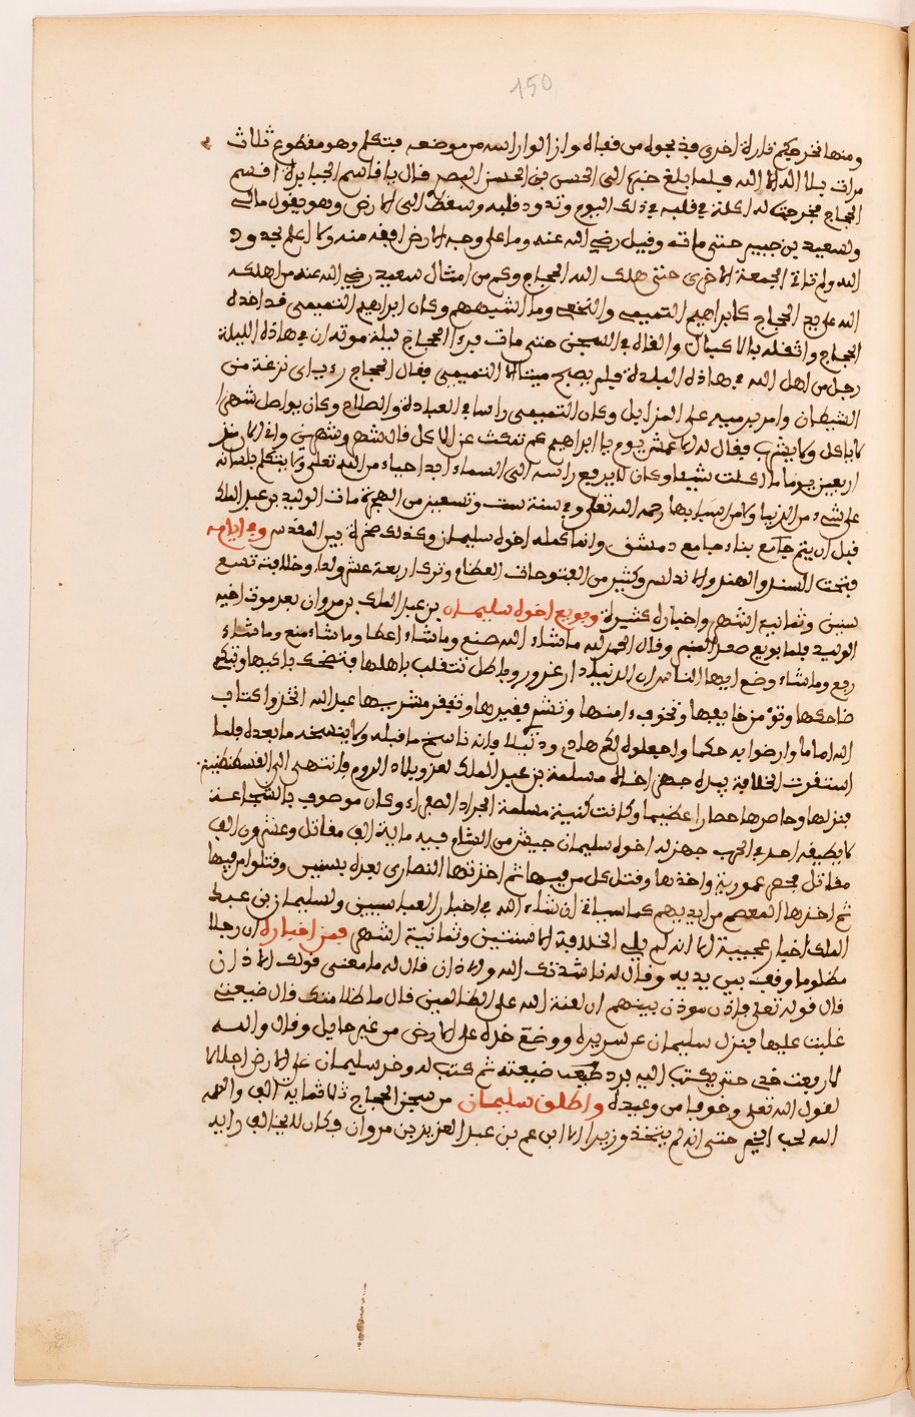 150
ومنها فخر حيكم تارة اخرى فذبحوه من قفاه وازالوا راسه من موضعه فتكلم وهو مقطوع ثلاث
مرات بلا اله الا الله فلما بلغ خبره الى الحسن بن الحسن البصر قال يا قاسم الجبابرة اقسم
الحجاج فخرجت له اكلة في قلبه في ذلك اليوم وتدود قلبه وسقط الى الارض وهو يقول مالي
ولسعيد بن جبير حتى مات وقيل رضي الله عنه وما على وجه الارض افقه منه ولا اعلم بحدود
الله ولم تات الجمعة الاخرى حتى هلك الله الحجاج وكم من امثال سعيد رضي الله عنه من اهلكه
الله على يد الحجاج كابراهيم التميمي والنخعي وما اشبههم وكان ابراهيم التميمي قد اخذه
الحجاج واثقله بالاكبال والقاه في السجن حتى مات فرءا الحجاج ليلة موته ان في هاذه الليلة
رجل من اهل الله في هاذه البلدة فلم يصبح ميتا الا التميمي فقال الحجاج رءياي نزغة من
الشيطان وامر برميه على المزابل وكان التميمي راسا في العبادة والصلاح وكان يواصل شهرا
لا ياكل ولا يشرب فقال له الاعمش يوم يا ابراهيم كم تمكث عن الاكل قال شهر وشهرين واني الان منذ
اربعين يوما ما اكلت شيئا وكان لا يرفع راسه الى السماء ابدا حياء من الله تعلى ولا يتكلم بلسانه
على شيء من الدنيا ولا من اسبابها رحمه الله تعلى وفي سنة ست وتسعين من الهجرة مات الوليد بن عبد الملك
قبل ان يتم جامع بناء جامع دمشق وانما كمله اخوه سليمان وكذلك صخرة بيت المقدس وفي ايامه
فتحت السند والهند والاندلس وكثير من الفتوحات العظام وترك اربعة عشر ولدا وخلافته تسع
سنين وثمانية اشهر واخباره كثيرة وبويع اخوه سليمان بن عبد الملك بن مروان بعد موت اخيه
الوليد فلما بويع صعد المنبر وقال الحمد لله ما شاء الله صنع وما شاء اعطا وما شاء منع وما شاء
رفع وما شاء وضع ايها الناس ان الدنيا دار غرور وباطل تتقلب باهلها فتضحك باكيها وتبكي
ضاحكها وتؤمن خايفها وتخوف ءامنها وتغني فقيرها وتفقر مثريها عبد الله اتخذوا كتاب
الله اماما وارضوا به حكما واجعلوه لكم هاديا ودليلا فانه ناسخ ما قبله ولا ينسخه ما بعده فلما
استقرت الخلافة بيده جهز اخاه مسلمة بن عبد الملك لغزو بلاد الروم فانتهى الى القسطنطينة
فنزلها وحاصرها حصارا عظيما وكانت كنية مسلمة الجراد الصفراء وكان موصوف بالشجاعة
لا يطيقه احد في الحرب جهز له اخوه سليمان جيش من الشام فيه ماية الف مقاتل وعشرون الف
مقاتل فحصر عمورية واخذها وقتل كل من فيها ثم اخذتها النصارى بعده بسنين وقتلوا من فيها
ثم اخذها المعتصم من ايديهم كما سياتي ان شاء الله في اخبار العباسيين ولسليمان بن عبد
الملك اخبار عجيبة الا انه لم يلي الخلافة الا سنتين وثمانية اشهر فمن اخباره ان رجلا
مظلوما وقف بين يديه وقال له ناشدتك الله والاذان قال له ما معنى قولك الاذان
قال قوله تعلى فاذن موذن بينهم ان لعنة الله على الظالمين قال ما ظلامتك قال ضيعتي
غلبت عليها فنزل سليمان عن سريره ووضع خده على الارض من غير حايل وقال والله
لا رفعت خدي حتى يكتب اليه برد ضيعته ثم كتب له وخر سليمان على الارض اجلالا
لقول الله تعلى وخوفا من وعيده واطلق سليمان من سجن الحجاج ثلاثماية الف والهمه
الله لحب الخير حتى انه لم يتخذ وزيرا الا ابن عم بن عبد العزيز بن مروان فكان لا يخالف رايه